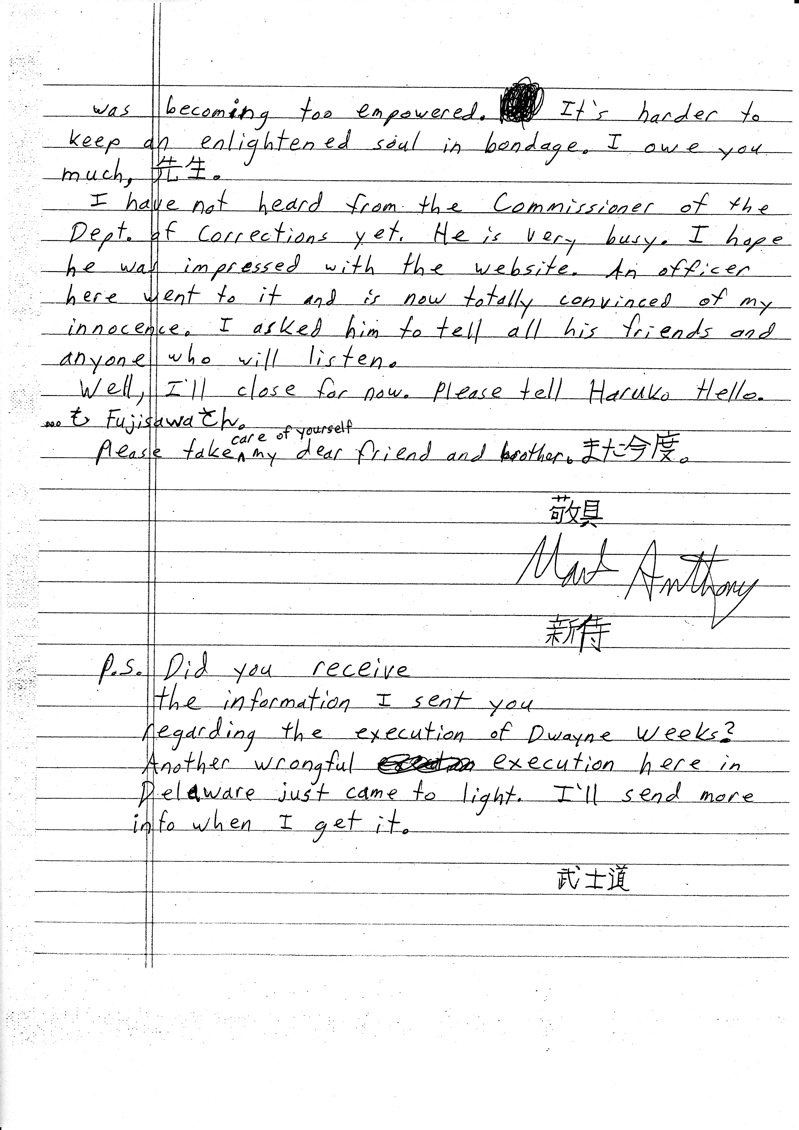 was becoming too empowered. It's harder to
keep an enlightened soul in bondage. I owe you
much, 先生。
I have not heard from the Commissioner of the
Dept. of Corrections yet. He is very busy. I hope
he was impressed with the website. An officer
here went to it and is now totally convinced of my
innocence. I asked him to tell all his friends and
anyone who will listen.
Well, I'll close for now. Please tell Haruko Hello.
...も Fujisawaさん。
care of yourself
Please take my dear friend and brother. また今度。
敬具
Mark Anthony
新侍
P.S. Did you receive
the information I sent you
regarding the execution of Dwayne Weeks?
Another wrongful execution here in
Delaware just came to light. I'll send more
info when I get it.
武士道